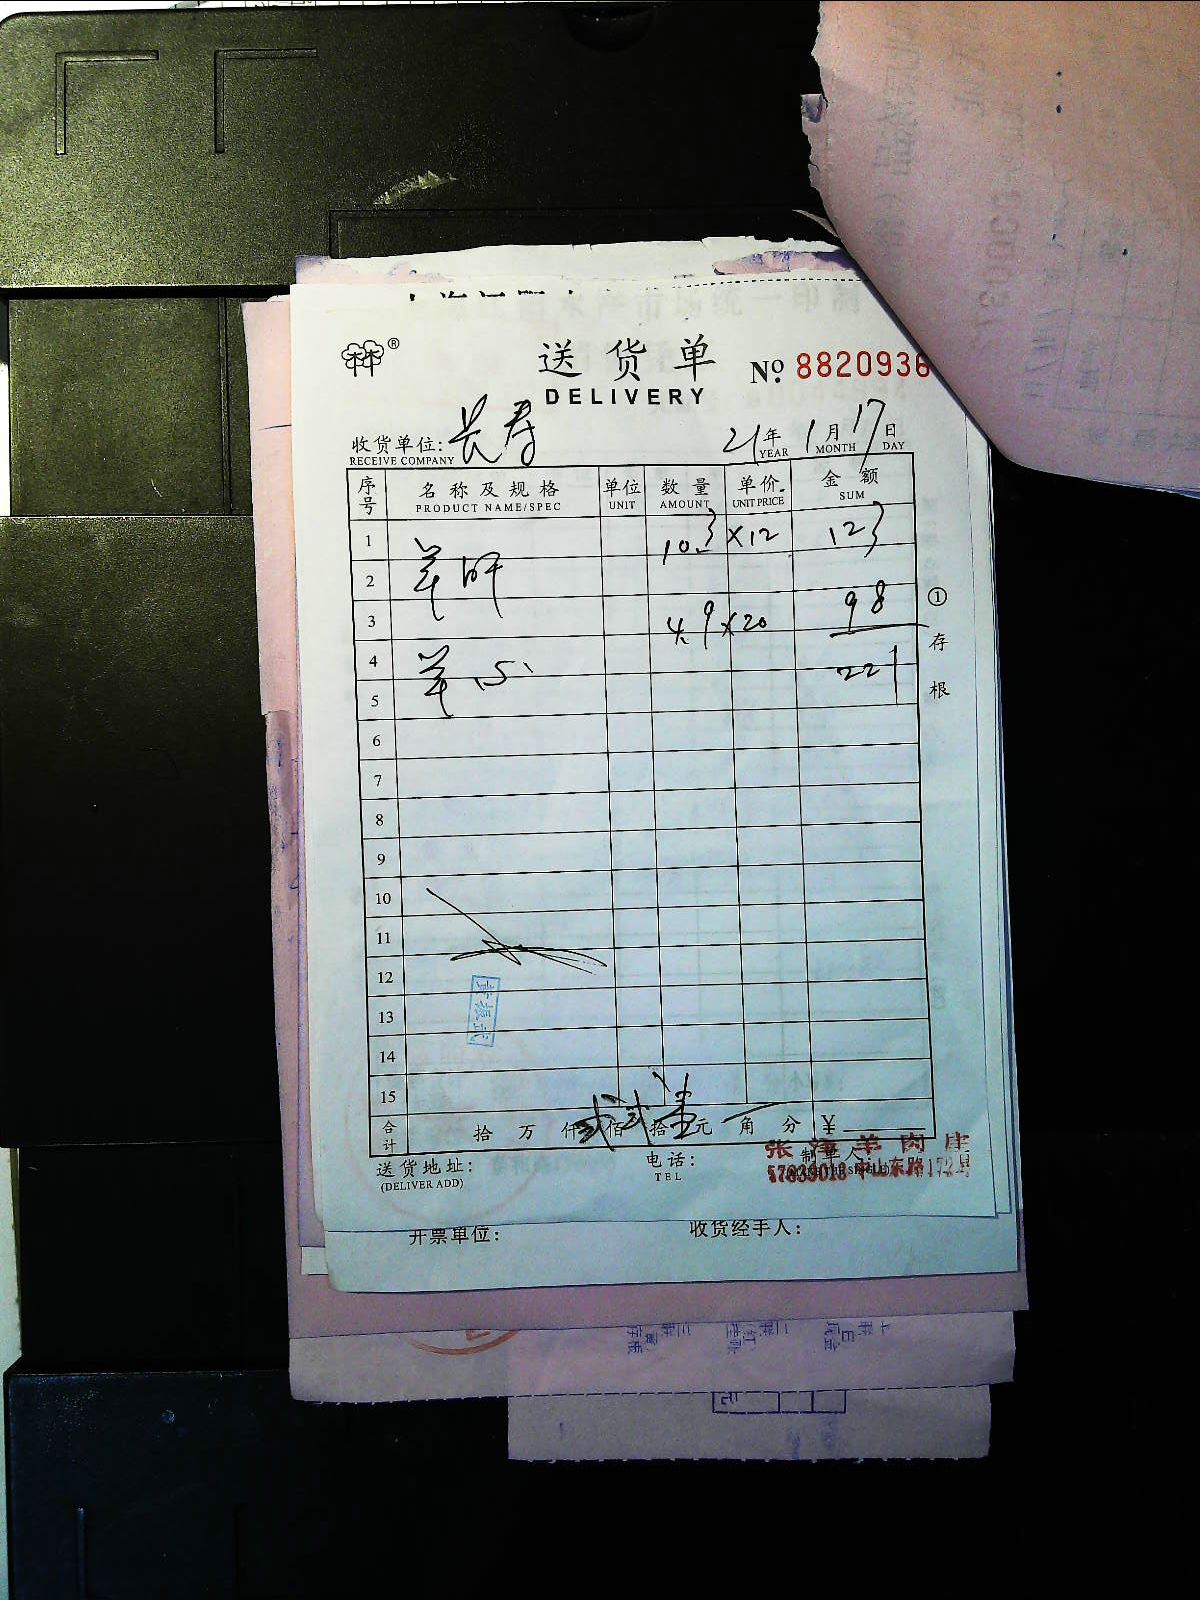 送货单
DELIVERY
No. 8820936
收货单位: 长寿
RECEIVE COMPANY
21年 1月 17日
YEAR MONTH DAY
序号 名称及规格 单位 数量 单价 金额
PRODUCT NAME/SPEC UNIT AMOUNT UNIT PRICE SUM
1 10.3 ×12 123
2 羊肝
3 4.9 ×20 98
4 羊心
5 221
6
7
8
9
10
11
12
13
14
15
合计 拾 万 仟 贰 佰 贰 拾 壹 元 角 分 ¥
送货地址: 电话: 制单人
(DELIVER ADD) TEL
张泽羊肉庄
57839018 中山东路172号
①存根
开票单位: 收货经手人: